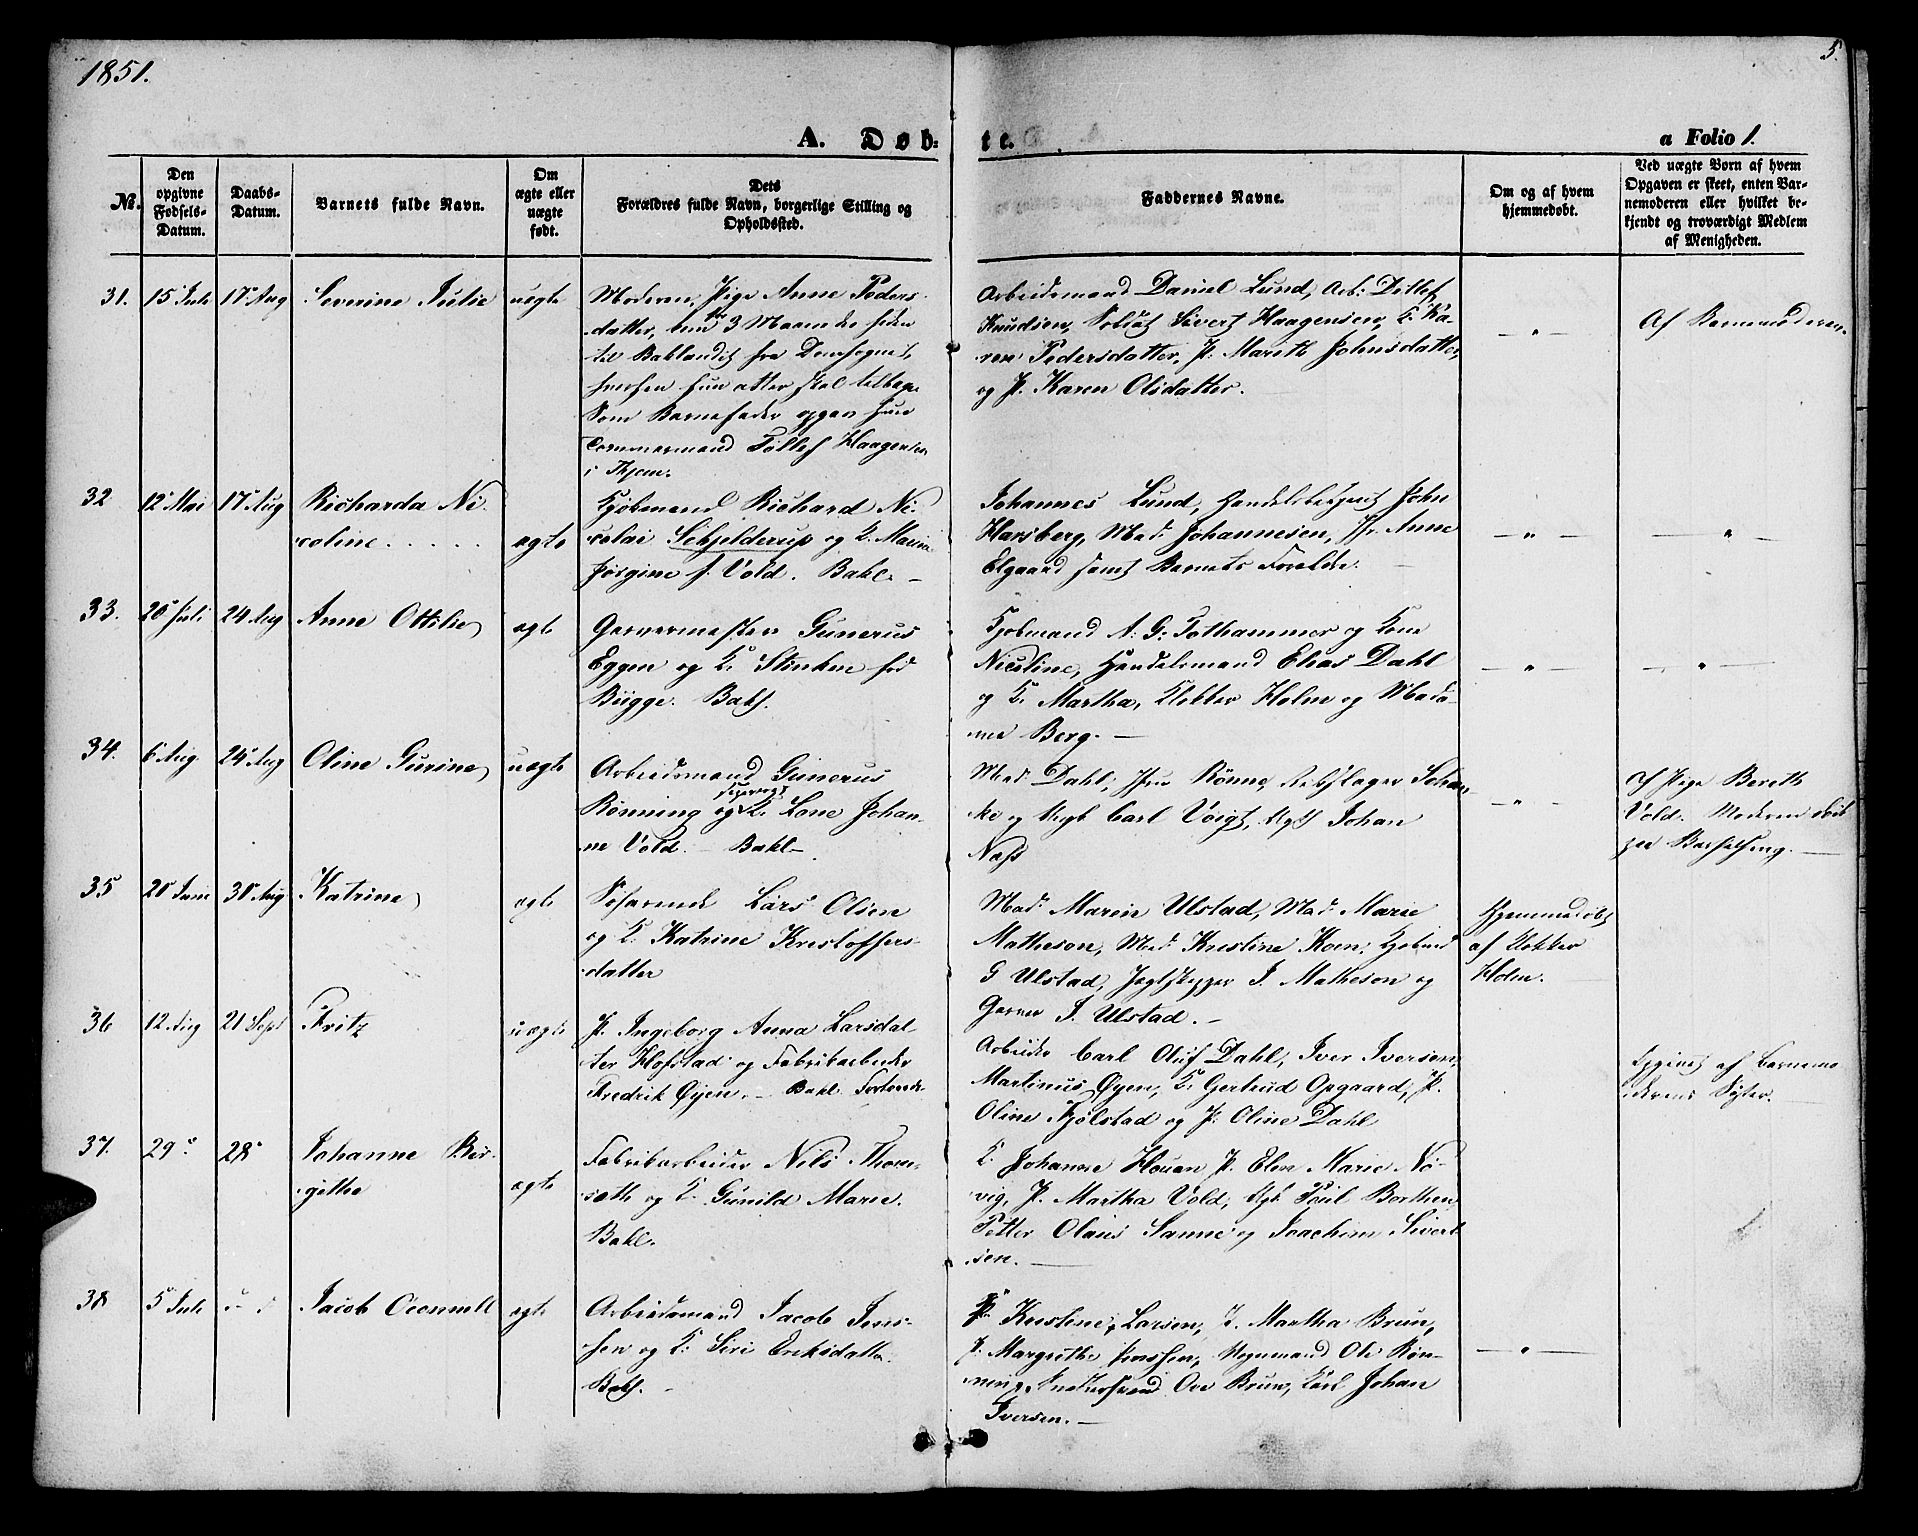 1851.
5.
A. Døb-
te.
a Folio 1.
No.
Den opgivne Fødsels-Datum.
Daabs-Datum.
Barnets fulde Navn.
Om ægte eller uægte født.
Dets
Forældres fulde Navn, borgerlige Stilling og
Opholdssted.
Faddernes Navne.
Om og af hvem
hjemmedøbt.
Ved uægte Børn af hvem
Opgaven er skeet, enten Bar-
nemoderen eller hvilket be-
kjendt og troværdigt Medlem
af Menigheden.
31. 15 Juli 17 Aug Severine Julie uægte
Moderen, Pige Anne Peders-
datter, 3 Maaneder siden
til Baklandet fra
hun atter skal tilbage.
Som Barnefader opgav hun
Tømmermand Tollef Haagensen
i Thjem.
Arbeidsmand Daniel Lund, Arb: Ditlef
Knudsen, Soldat Sivert Haagensen, K. Ka-
ren Pedersdatter, P. Marith Johnsdatter,
og P. Karen Olsdatter.
Af Barnemoderen.
32 12 Mai 17 Aug Richarda Ni-
coline. ægte
Kjøbmand Richard Ni-
colai Schjelderup og K. Marie
Jørgine f. Vold. Bakl.
Johannes Lund, Handelsbetjent John
Harsberg, Mad: Johannesen, Jfr. Anne
Elgaard samt Barnets Forældre.
33. 20 Juli 24 Aug Anne Ottilie ægte
Garvermester Gunerus
Eggen og K. fød
Bügge. Bakl.
Kjøbmand N. G. Tothammer og Kone
Nicoline, Handelsmand Elias Dahl
og K. Martha, Klokker Holm og Mada-
me Berg.
34. 6 Aug 24 Aug Oline Gurine uægte
Arbeidsmand Gunerus
Rønning og K. Lone Johan-
ne Vold. Bakl.
Mad. Dahl, Jfru Rønne, Rebslager Johan-
ke og Ugk Carl Voigt, Ugk Johan
Næss
af Pige Bereth
Vold. Moderen
Barselseng.
35 20 Juni 30 Aug Katrine ægte
Søfarende Lars Olsen
og K. Katrine Kristoffers-
datter
Mad. Maren Ulstad, Mad. Marie
Matheson, Mad. Kristine Koen, Kjøbmd
G Ulstad, Jagtskipper I. Matheson og
Garver J. Ulstad.
Hjemmedøbt
af Klokker
Holm.
36 12 Aug 21 Sept Fritz uægte
P. Ingeborg Anna Larsdat-
ter Hofstad og Fabrikarbeider
Fredrik Øyen. Bakl.
Arbeider Carl Oluf Dahl, Iver Iversen,
Martinus Øyen, K. Gertrud Opgaard, P.
Oline Kjølstad og P. Oline Dahl
Opgivet af Barnemo-
derens Syster.
37. 29 28 Johanne Bir-
githe ægte
Fabrikarbeider Nils Thom-
sæth og K. Gunild Marie.
Bakl.
K. Johanne Houan P. Elen Marie Nø-
vig, P. Martha Vold, Ugk Poul Borthen,
Petter Olaus Sanne og Joachim Sivert-
sen.
38 5 Juli Jacob ægte
Arbeidsmand Jacob Jens-
sen og K: Siri Eriksdatter.
Bakl.
P. Kristine Larsen, P. Martha Brun,
P. Margrethe Jenssen, Vognmand Ole Røn-
ning, Ove Brun, Karl Johan
Iversen.